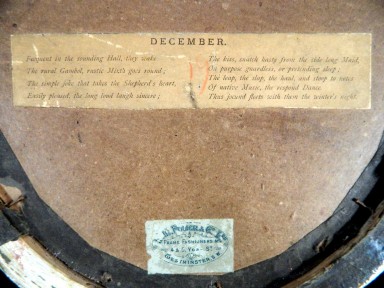 DECEMBER.
Frequent in the sounding Hall, they wake
The rural Gambol, rustic Mirth goes round;
The simple joke that takes the Shepherd's heart,
Easily pleased; the long loud laugh sincere;
The kiss, snatch'd hasty from the side-long Maid,
On purpose guardless, or pretending sleep;
The leap, the slap, the haul, and shook to notes
Of native Music, the respond Dance.
Thus jocund fleets with them the winter's night.
FRAME
WESTMINSTER S.W.